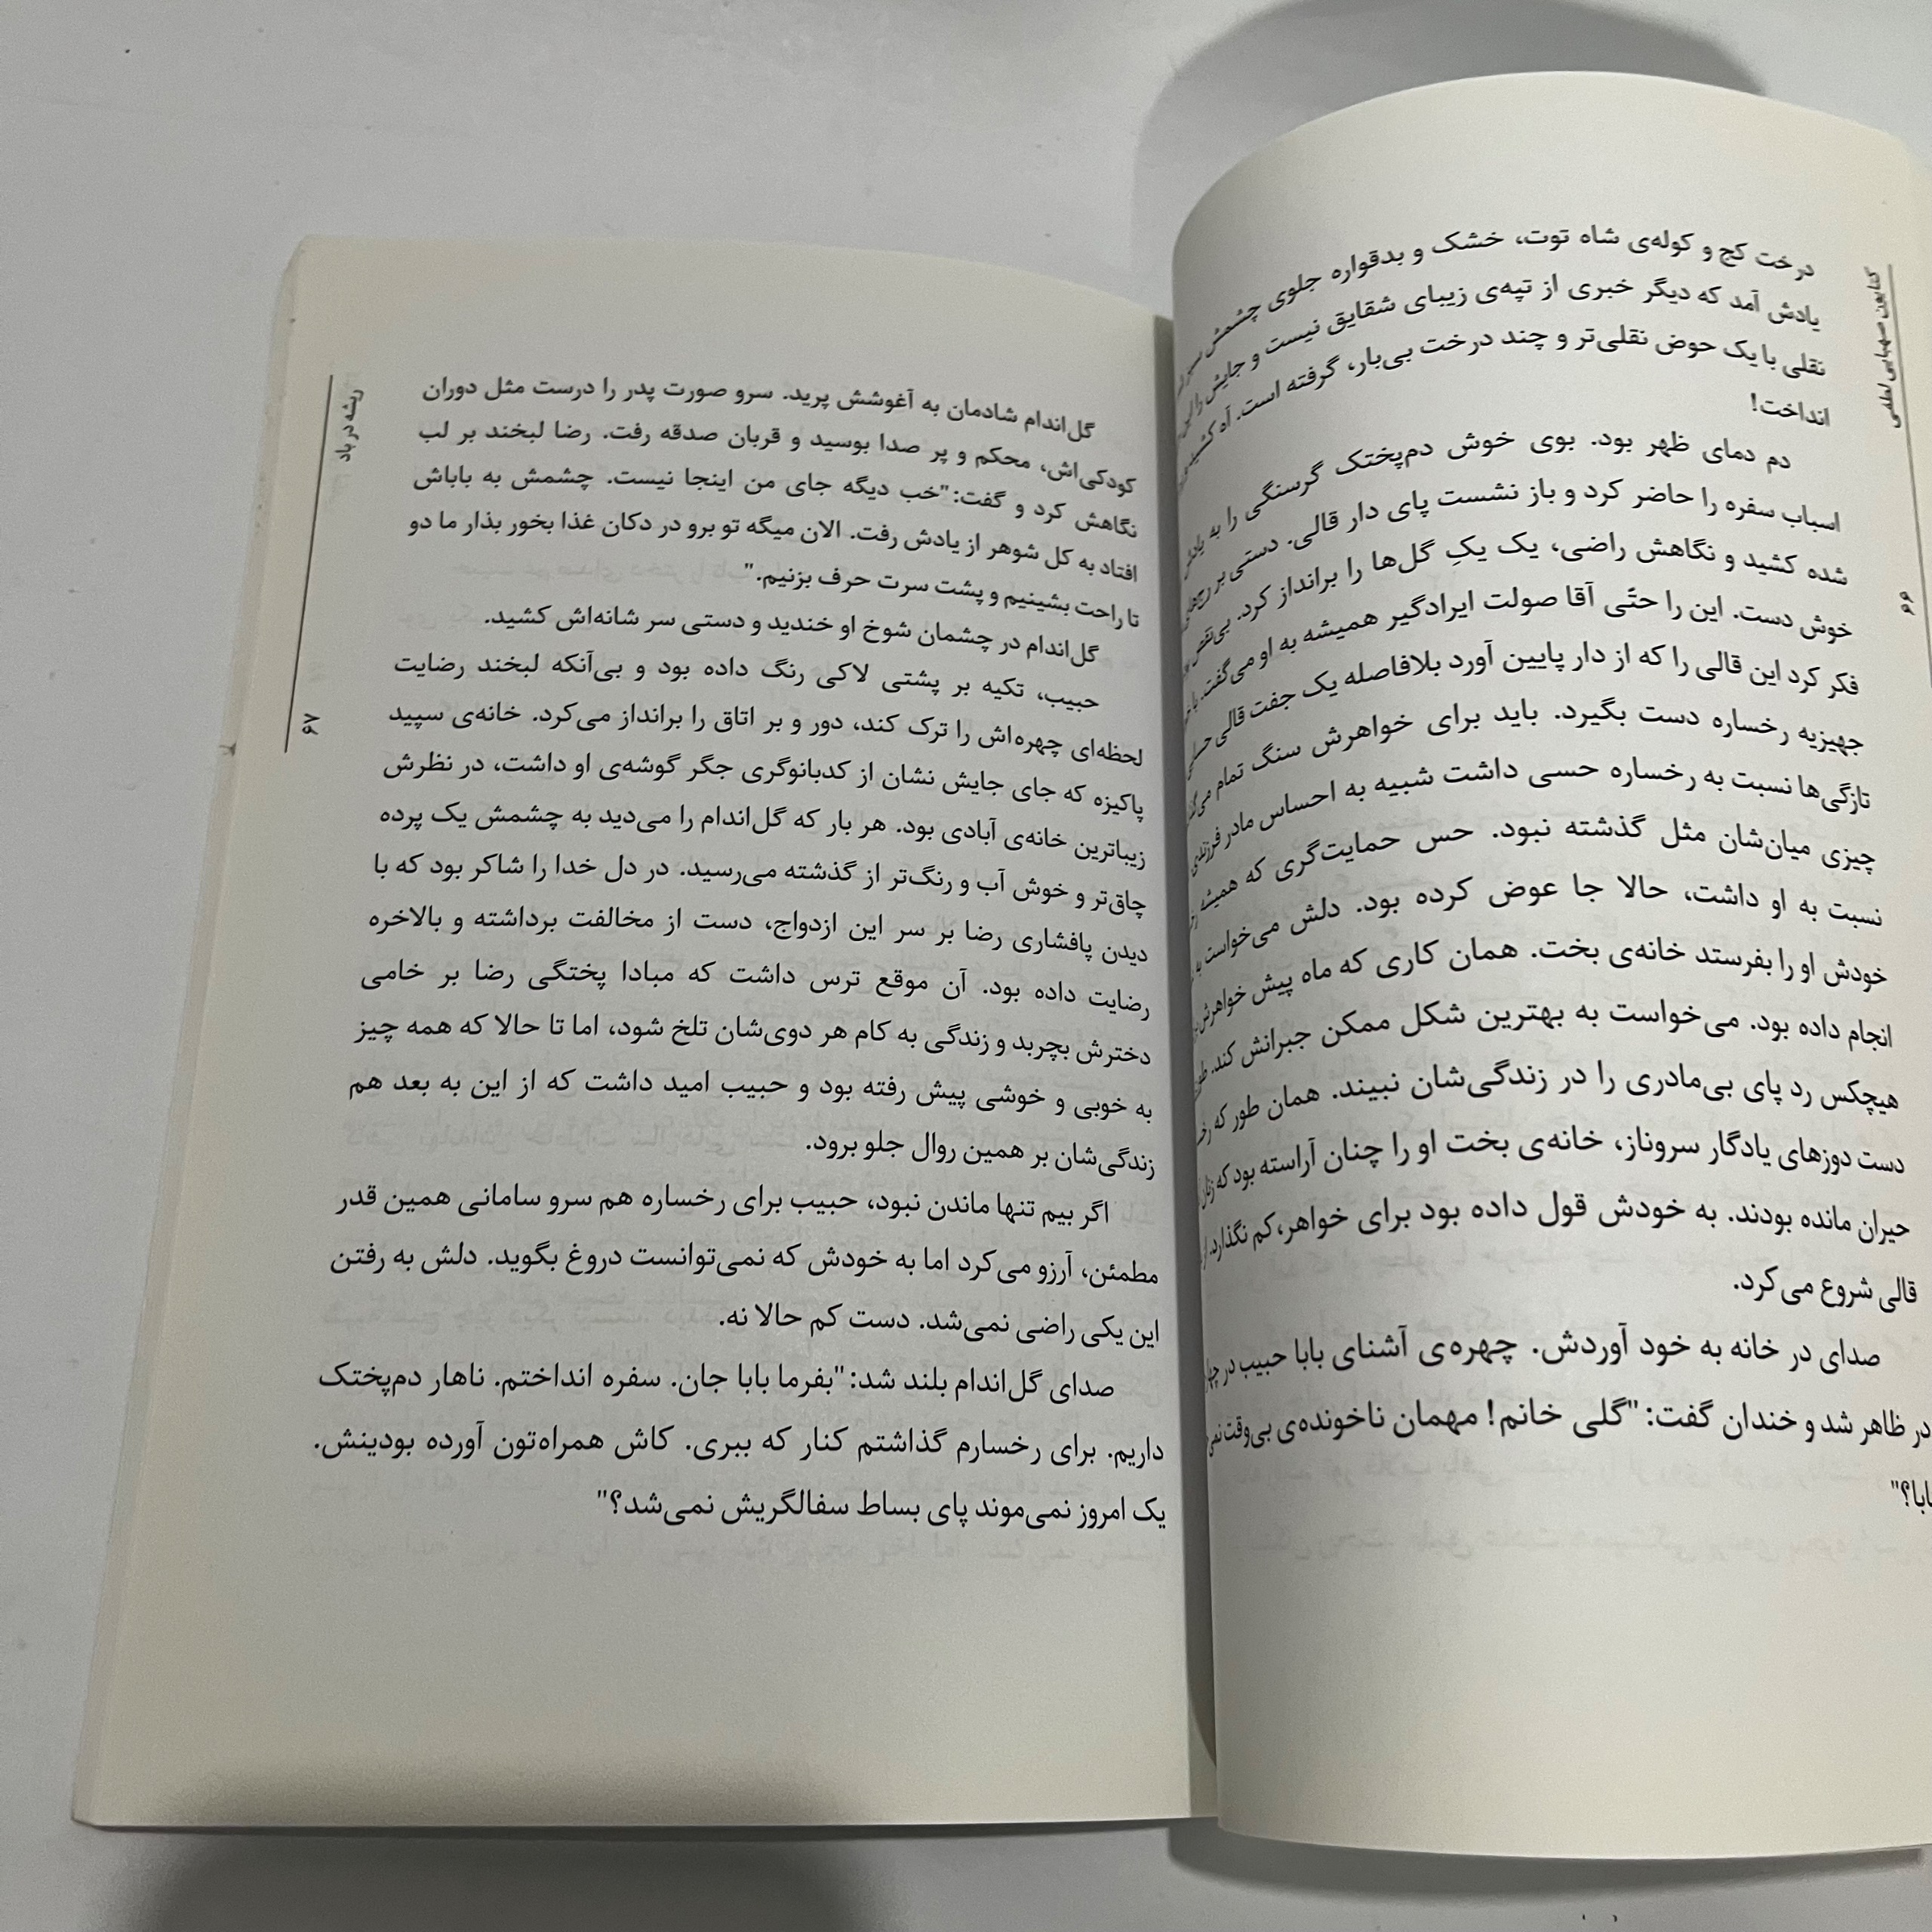 کتایون صهبایی لطفی
۶۶
درخت کج و کوله‌ی شاه توت، خشک و بدقواره جلوی چشمش سبز
یادش آمد که دیگر خبری از تپه‌ی زیبای شقایق نیست و جایش را
نقلی با یک حوض نقلی‌تر و چند درخت بی‌بار، گرفته است. آه کشید
انداخت!
دم دمای ظهر بود. بوی خوش دم‌پختک گرسنگی را به یادش
اسباب سفره را حاضر کرد و باز نشست پای دار قالی. دستی بر رج‌های
شده کشید و نگاهش راضی، یک یکِ گل‌ها را برانداز کرد. بی‌نقص
خوش دست. این را حتّی آقا صولت ایرادگیر همیشه به او می‌گفت. با
فکر کرد این قالی را که از دار پایین آورد بلافاصله یک جفت قالی
جهیزیه رخساره دست بگیرد. باید برای خواهرش سنگ تمام
تازگی‌ها نسبت به رخساره حسی داشت شبیه به احساس مادر فرزندی
چیزی میان‌شان مثل گذشته نبود. حس حمایت‌گری که همیشه
نسبت به او داشت، حالا جا عوض کرده بود. دلش می‌خواست به
خودش او را بفرستد خانه‌ی بخت. همان کاری که ماه پیش خواهرش
انجام داده بود. می‌خواست به بهترین شکل ممکن جبرانش کند.
هیچکس رد پای بی‌مادری را در زندگی‌شان نبیند. همان طور که
دست دوزهای یادگار سروناز، خانه‌ی بخت او را چنان آراسته بود که
حیران مانده بودند. به خودش قول داده بود برای خواهر،کم نگذارد.
قالی شروع می‌کرد.
صدای در خانه به خود آوردش. چهره‌ی آشنای بابا حبیب در
در ظاهر شد و خندان گفت:"گلی خانم! مهمان ناخونده‌ی بی‌وقت
بابا؟"
ریشه در باد
۶۷
گل‌اندام شادمان به آغوشش پرید. سرو صورت پدر را درست مثل دوران
کودکی‌اش، محکم و پر صدا بوسید و قربان صدقه رفت. رضا لبخند بر لب
نگاهش کرد و گفت:"خب دیگه جای من اینجا نیست. چشمش به باباش
افتاد به کل شوهر از یادش رفت. الان میگه تو برو در دکان غذا بخور بذار ما دو
تا راحت بشینیم و پشت سرت حرف بزنیم."
گل‌اندام در چشمان شوخ او خندید و دستی سر شانه‌اش کشید.
حبیب، تکیه بر پشتی لاکی رنگ داده بود و بی‌آنکه لبخند رضایت
لحظه‌ای چهره‌اش را ترک کند، دور و بر اتاق را برانداز می‌کرد. خانه‌ی سپید
پاکیزه که جای جایش نشان از کدبانوگری جگر گوشه‌ی او داشت، در نظرش
زیباترین خانه‌ی آبادی بود. هر بار که گل‌اندام را می‌دید به چشمش یک پرده
چاق‌تر و خوش آب و رنگ‌تر از گذشته می‌رسید. در دل خدا را شاکر بود که با
دیدن پافشاری رضا بر سر این ازدواج، دست از مخالفت برداشته و بالاخره
رضایت داده بود. آن موقع ترس داشت که مبادا پختگی رضا بر خامی
دخترش بچربد و زندگی به کام هر دوی‌شان تلخ شود، اما تا حالا که همه چیز
به خوبی و خوشی پیش رفته بود و حبیب امید داشت که از این به بعد هم
زندگی‌شان بر همین روال جلو برود.
اگر بیم تنها ماندن نبود، حبیب برای رخساره هم سرو سامانی همین قدر
مطمئن، آرزو می‌کرد اما به خودش که نمی‌توانست دروغ بگوید. دلش به رفتن
این یکی راضی نمی‌شد. دست کم حالا نه.
صدای گل‌اندام بلند شد:"بفرما بابا جان. سفره انداختم. ناهار دم‌پختک
داریم. برای رخسارم گذاشتم کنار که ببری. کاش همراه‌تون آورده بودینش.
یک امروز نمی‌موند پای بساط سفالگریش نمی‌شد؟"